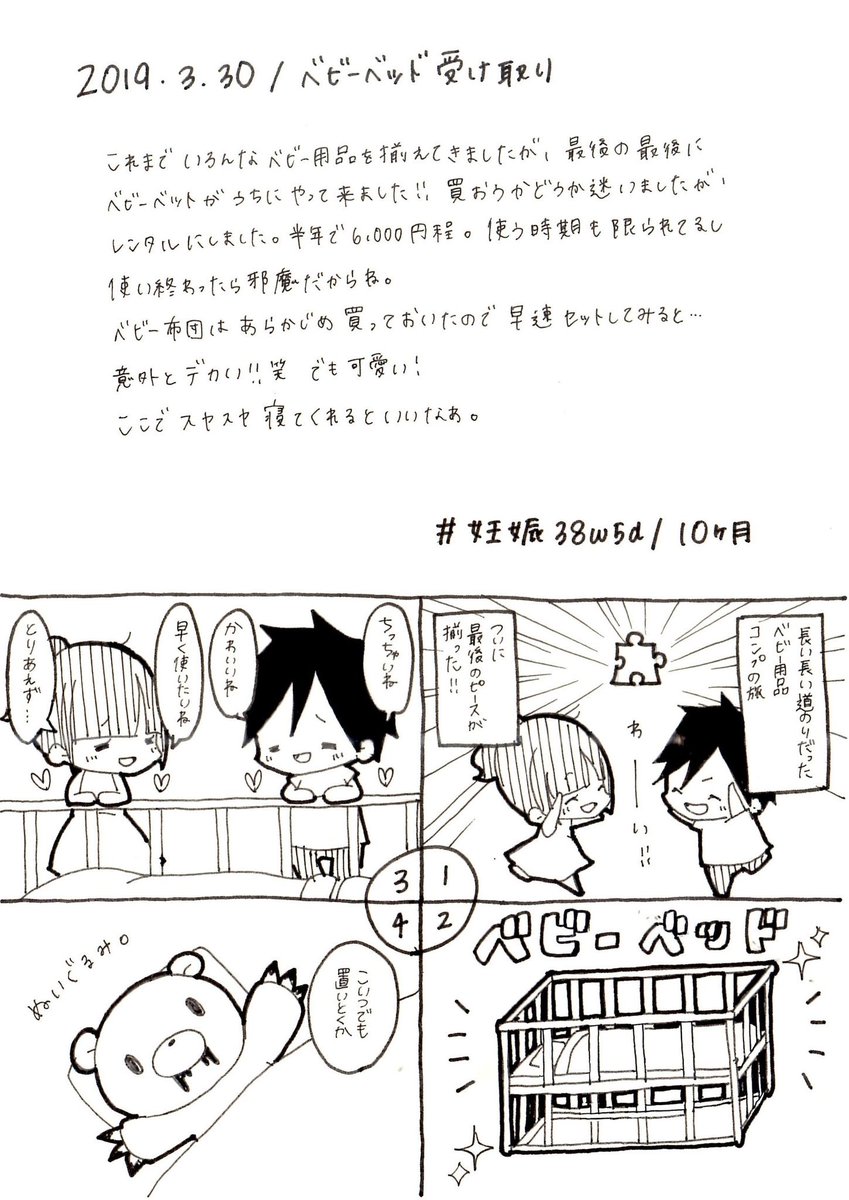 2019.3.30/ベビーベッド受け取り
これまでいろんなベビー用品を揃えてきましたが、最後の最後に
ベビーベットがうちにやって来ました!!買おうかどうか迷いましたが、
レンタルにしました。半年で6,000円程。使う時期も限られてるし
使い終わったら邪魔だからね。
ベビー布団はあらかじめ買っておいたので早速セットしてみると…
意外とデカい!!笑 でも可愛い!
ここでスヤスヤ寝てくれるといいなぁ。
#妊娠38w5d/10ヶ月
1
長い長い道のりだった
ベビー用品
コンプの旅
ついに
最後のピースが
揃った!!
わーーい!!
2
ベビーベッド
3
ちっちゃいね
かわいいね
早く使いたいね
とりあえず…
4
こいつでも
置いとくか
ぬいぐるみ。